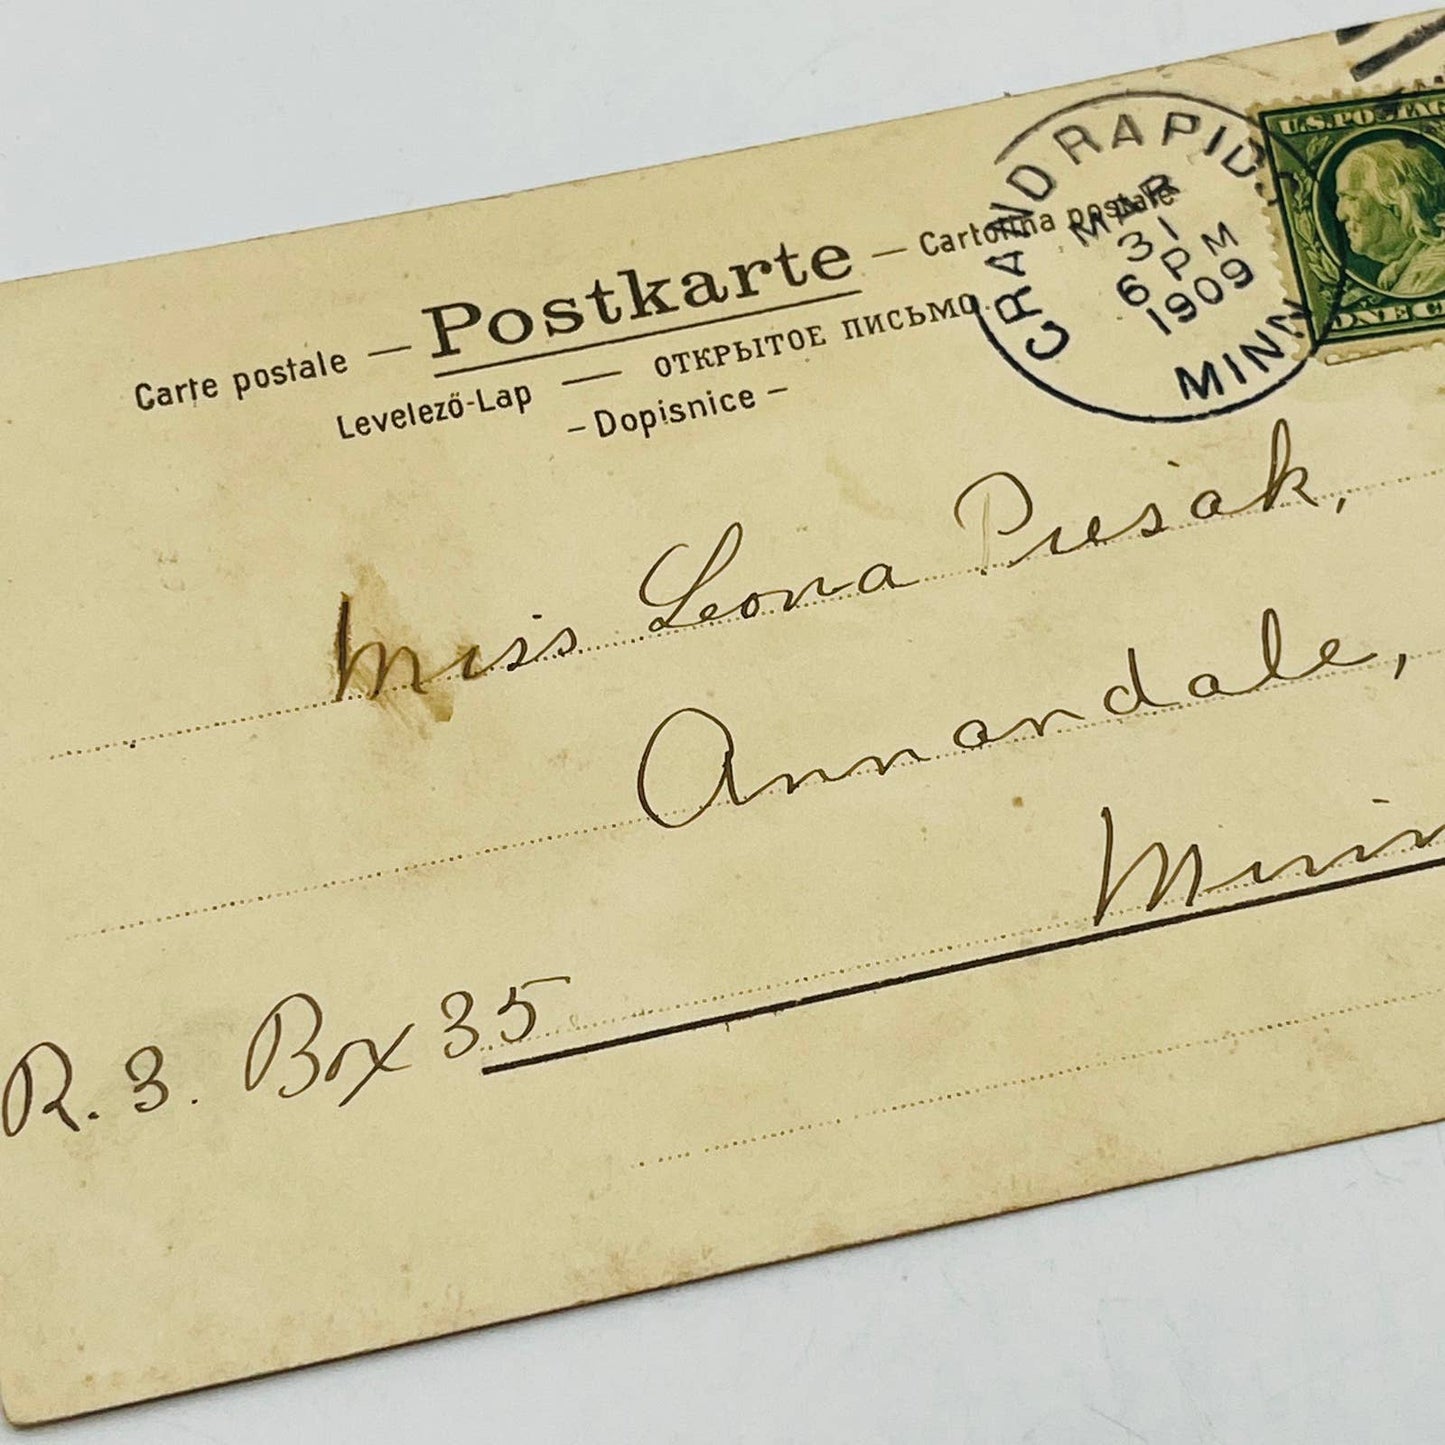 Carte postale — Postkarte — Cartolina postale
Levelező-Lap — ОТКРЫТОЕ ПИСЬМО.
– Dopisnice –
GRAND RAPIDS
MAR
31
6 PM
1909
MINN
U.S. POSTAG
ONE C
Miss Leona Piesak,
Annandale,
Minn
R. 3. Box 35